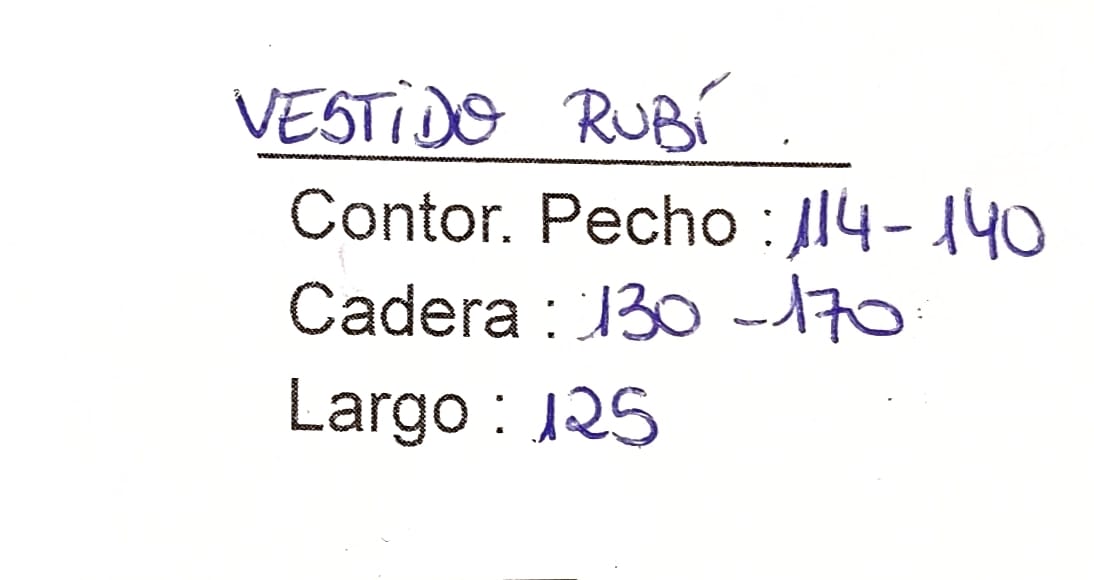 VESTIDO RUBÍ.
Contor. Pecho : 114 - 140
Cadera : 130 - 170
Largo : 125